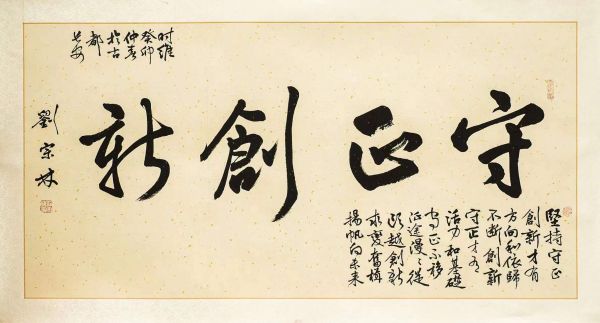 守正創新
堅持守正
創新才有
方向和依歸
不斷創新
守正才有
活力和基礎
守正不移
征途漫々從
頭越創新
求變奮楫
揚帆向未来
时維
癸卯
仲春
於古
都
长安
劉宗林